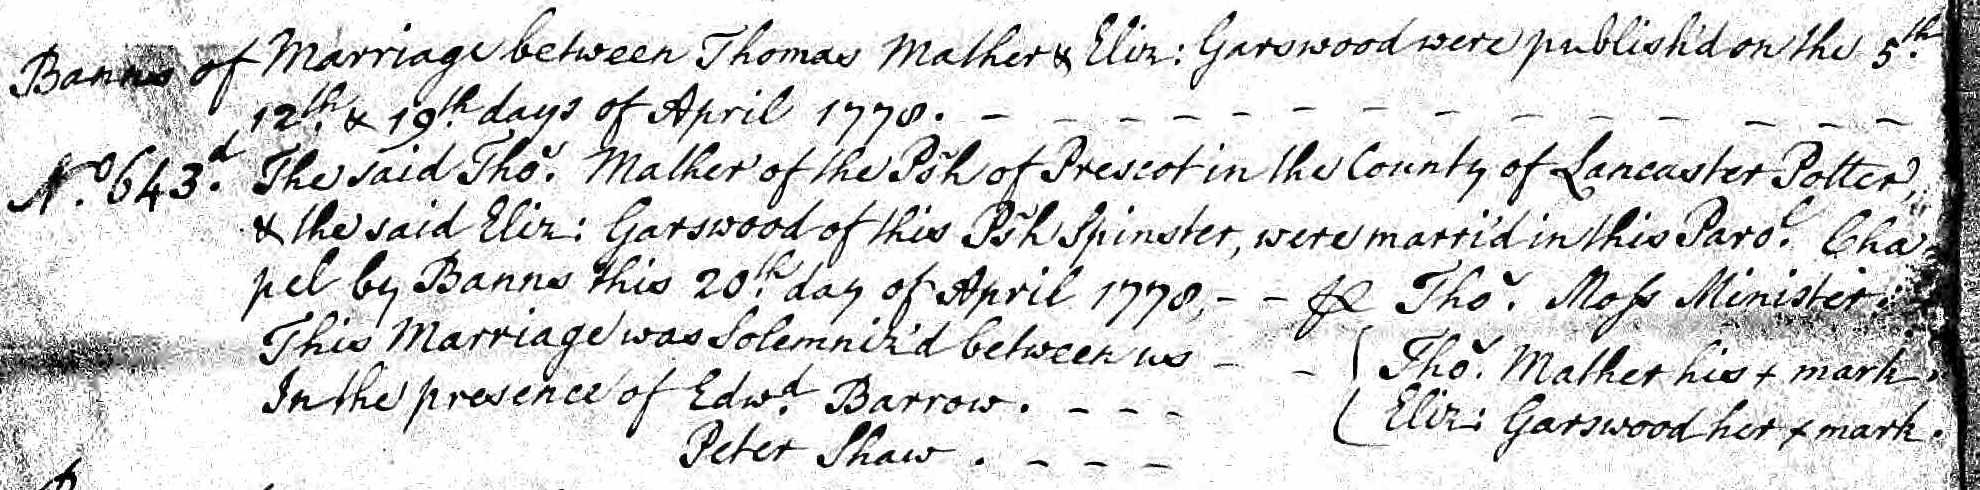 Banns of Marriage between Thomas Mather & Eliz: Garswood were publish'd on the 5th.
12th. & 19th. days of April 1778. - - - - - - - - - - - - - -
No. 643.d The said Thos. Mather of the Psh of Prescot in the County of Lancaster Potter,
& the said Eliz: Garswood of this Psh Spinster, were marri'd in this Parol. Cha=
pel by Banns this 20th. day of April 1778, - - Thos. Moss Minister.
This Marriage was Solemniz'd between us - - { Thos. Mather his + mark.
In the presence of Edwd. Barrow. - - - { Eliz: Garswood her + mark.
Peter Shaw. - - -